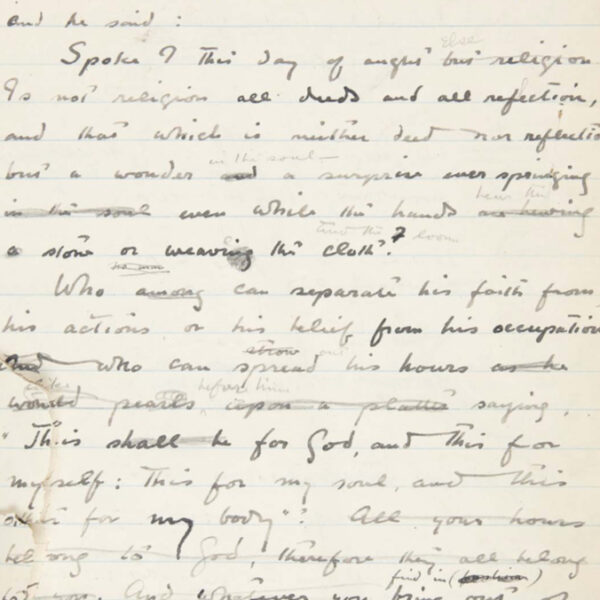 and he said :
Spoke I this day of aught but religion
else
Is not religion all deeds and all reflection,
and that which is neither deed nor reflection
but a wonder and a surprise ever springing
in the soul
in the soul even while the hands are hewing
hew the
a stone or weaving the cloth?
tend the loom
Who among can separate his faith from
his actions or his belief from his occupation
And who can spread his hours as he
would pearls upon a platter saying,
before him
"This shall be for God, and this for
myself: This for my soul, and this
other for my body"? All your hours
belong to God, therefore they all belong
find in
And whatever you bring out of